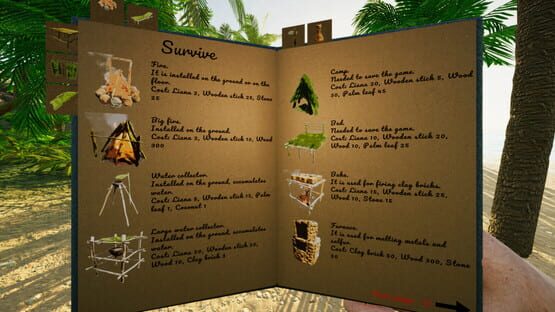 Survive
Fire.
It is installed on the ground or on the
floor.
Cost: Liana 2, Wooden stick 25, Stone
25
Big fire.
Installed on the ground.
Cost: Liana 2, Wooden stick 10, Wood
200
Water collector.
Installed on the ground, accumulates
water.
Cost: Liana 5, Wooden stick 15, Palm
leaf 1, Coconut 1
Large water collector.
Installed on the ground, accumulates
water.
Cost: Liana 20, Wooden stick 20,
Wood 10, Clay brick 3
Camp.
Needed to save the game.
Cost: Liana 20, Wooden stick 5, Wood
30, Palm leaf 45
Bed.
Needed to save the game.
Cost: Liana 10, Wooden stick 20,
Wood 10, Palm leaf 25
Bake.
It is used for firing clay bricks.
Cost: Liana 15, Wooden stick 25,
Wood 10, Stone 15
Furnace.
It is used for melting metals and
sulfur.
Cost: Clay brick 50, Wood 200, Stone
50